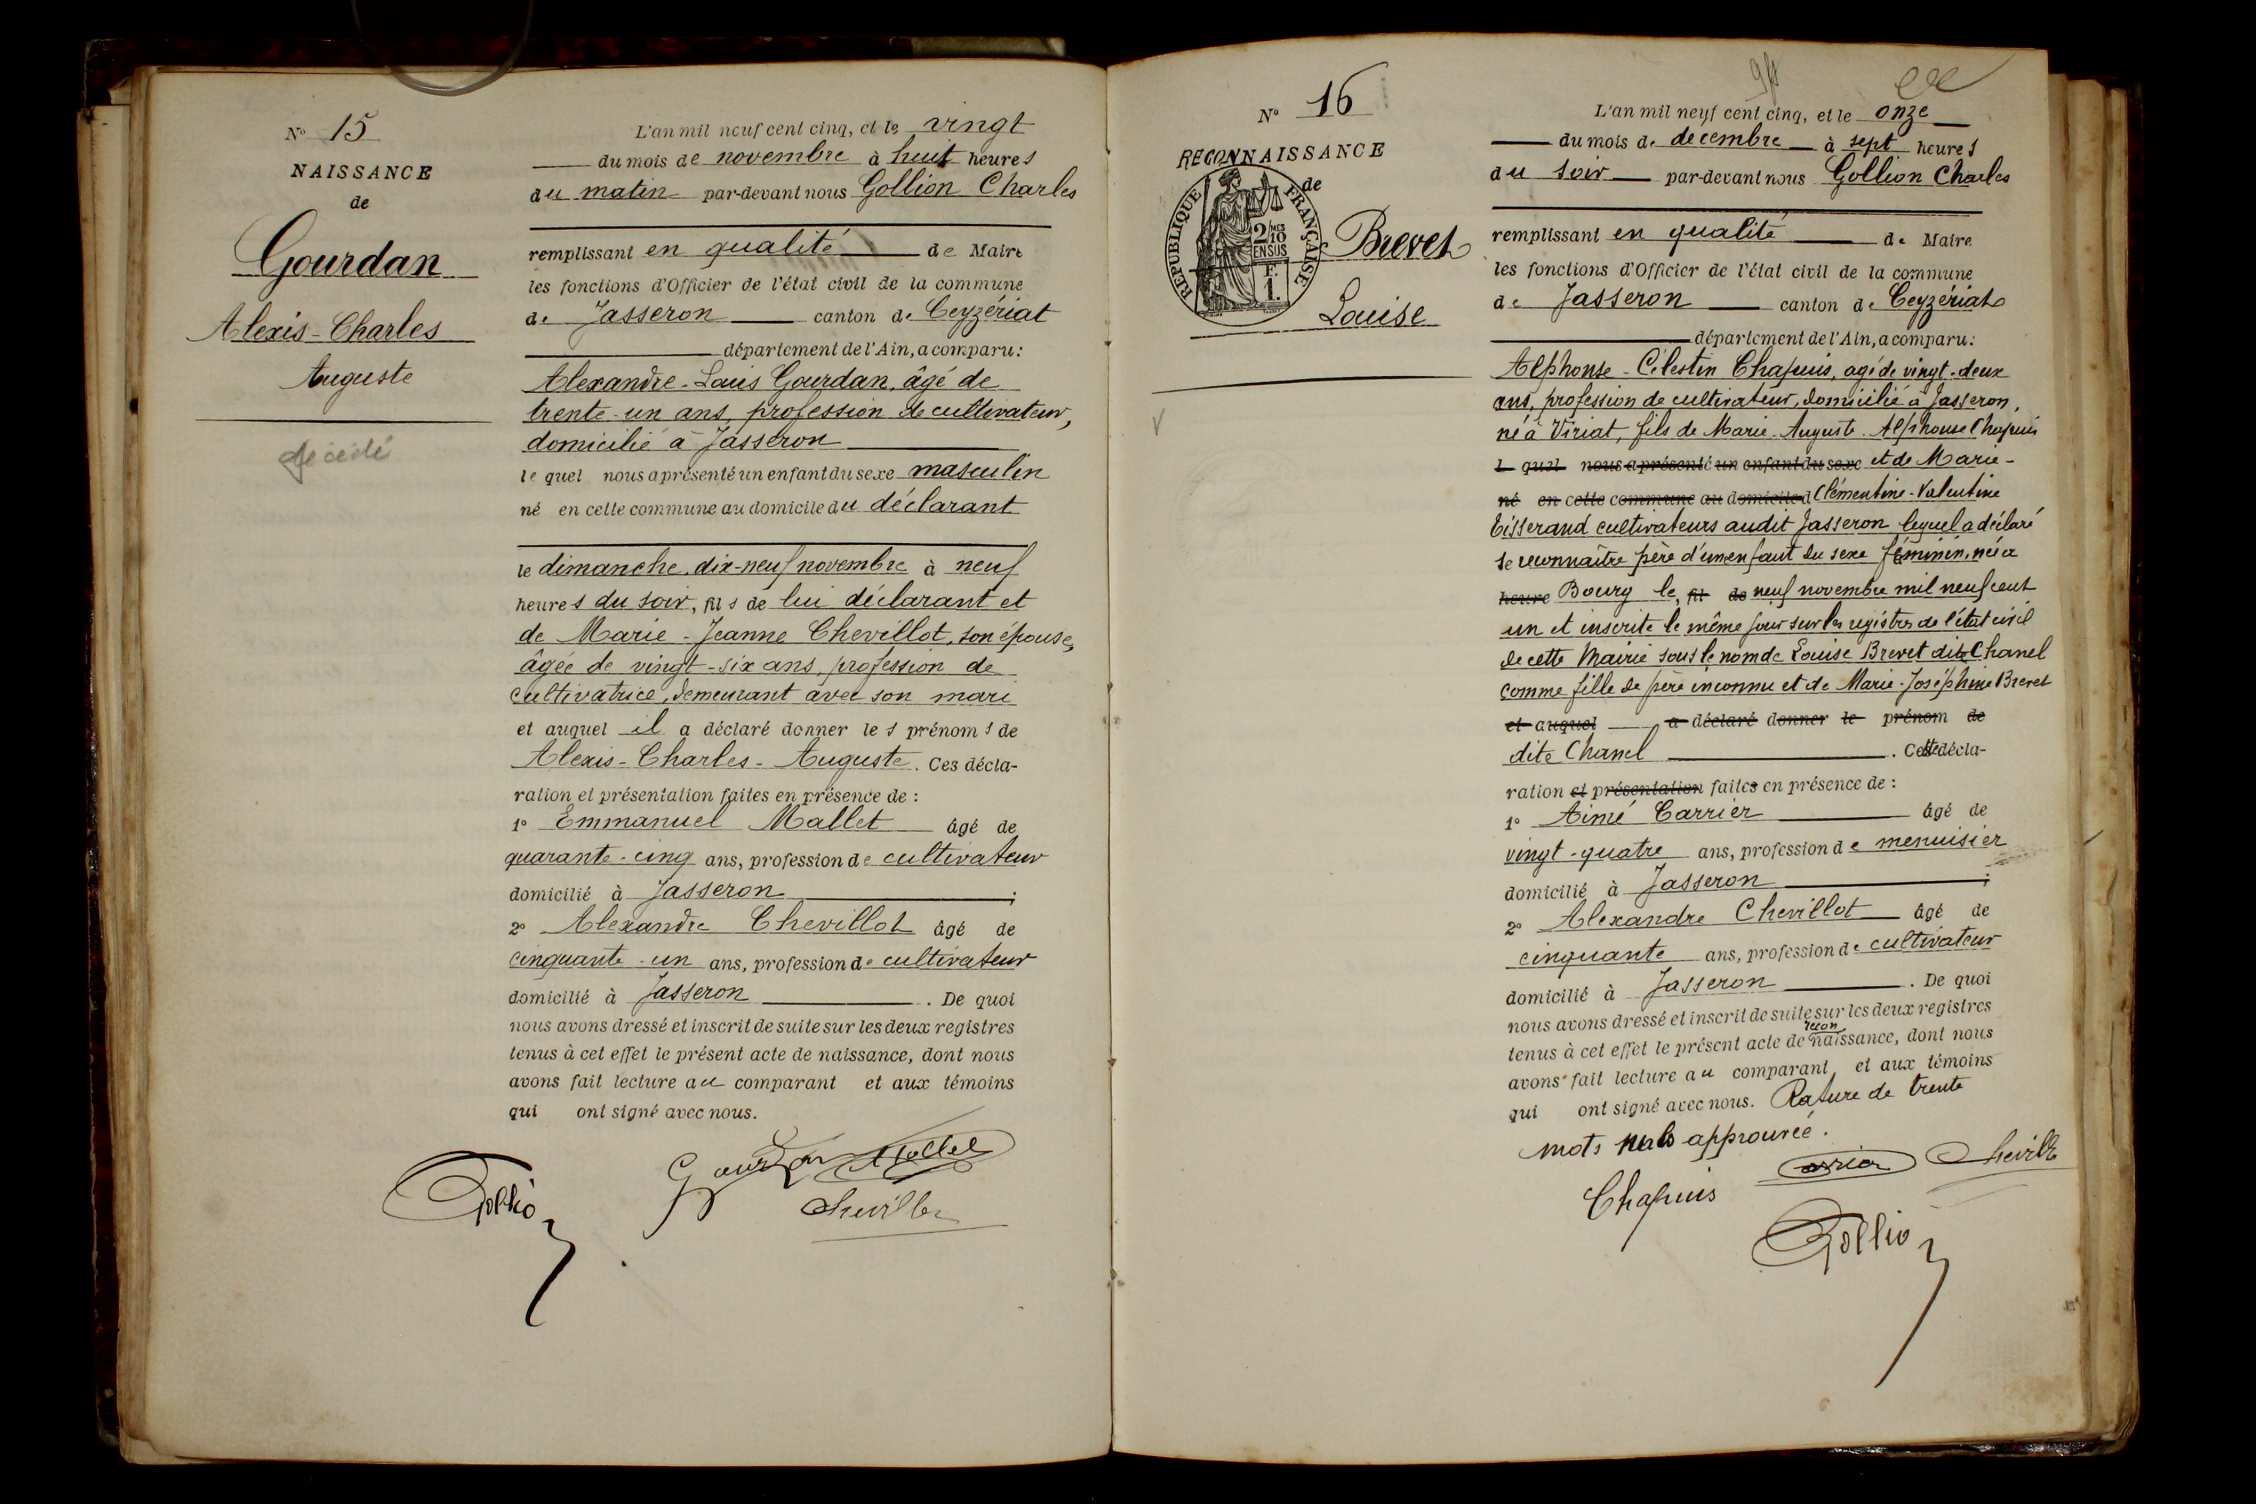 N° 15
NAISSANCE
de
Gourdan
Alexis-Charles
Auguste
décédé
L'an mil neuf cent cinq, et le vingt
du mois de novembre à huit heures
du matin par-devant nous Gollion Charles
remplissant en qualité de Maire
les fonctions d'Officier de l'état civil de la commune
de Jasseron canton de Ceyzériat
département de l'Ain, a comparu:
Alexandre-Louis Gourdan, âgé de
trente-un ans, profession de cultivateur,
domicilié à Jasseron
le quel nous a présenté un enfant du sexe masculin
né en cette commune au domicile du déclarant
le dimanche, dix-neuf novembre à neuf
heures du soir, fils de lui déclarant et
de Marie-Jeanne Chevillot, son épouse,
âgée de vingt-six ans, profession de
cultivatrice, demeurant avec son mari
et auquel il a déclaré donner les prénoms de
Alexis-Charles-Auguste. Ces décla-
ration et présentation faites en présence de:
1° Emmanuel Mallet âgé de
quarante-cinq ans, profession de cultivateur
domicilié à Jasseron ;
2° Alexandre Chevillot âgé de
cinquante-un ans, profession de cultivateur
domicilié à Jasseron. De quoi
nous avons dressé et inscrit de suite sur les deux registres
tenus à cet effet le présent acte de naissance, dont nous
avons fait lecture au comparant et aux témoins
qui ont signé avec nous.
Gourdan Mallet
Gollion Chevillot
N° 16
RECONNAISSANCE
de
RÉPUBLIQUE FRANÇAISE
2/10 MES
EN SUS
F.
1.
Brevet
Louise
L'an mil neuf cent cinq, et le onze
du mois de decembre à sept heures
du soir par-devant nous Gollion Charles
remplissant en qualité de Maire
les fonctions d'Officier de l'état civil de la commune
de Jasseron canton de Ceyzériat
département de l'Ain, a comparu:
Alphonse-Célestin Chapuis, agé de vingt-deux
ans, profession de cultivateur, domicilié à Jasseron,
né à Viriat, fils de Marie-Auguste-Alphonse Chapuis
l quel nous a présenté un enfant du sexe et de Marie-
né en cette commune au domicile d Clémentine-Valentine
Tisserand cultivateurs audit Jasseron lequel a déclaré
se reconnaître père d'un enfant du sexe féminin, née à
heure Bourg le, fil de neuf novembre mil neuf cent
un et inscrite le même jour sur les régistres de l'état civil
de cette Mairie sous le nom de Louise Brevet dite Chanel
comme fille de père inconnu et de Marie-Joséphine Brevet
et auquel a déclaré donner le prénom de
dite Chanel. Cette décla-
ration et présentation faites en présence de:
1° Aimé Carrier âgé de
vingt-quatre ans, profession de menuisier
domicilié à Jasseron ;
2° Alexandre Chevillot âgé de
cinquante ans, profession de cultivateur
domicilié à Jasseron. De quoi
nous avons dressé et inscrit de suite sur les deux registres
recon
tenus à cet effet le présent acte de naissance, dont nous
avons fait lecture au comparant et aux témoins
qui ont signé avec nous. Rature de trente
mots nuls approuvée.
Chapuis Carrier Chevillot
Gollion